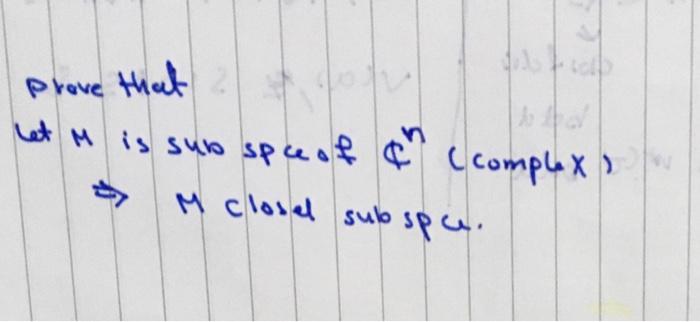 prove that
Let M is sub spce of ₵ⁿ (complex)
⇒ M closed sub spce.